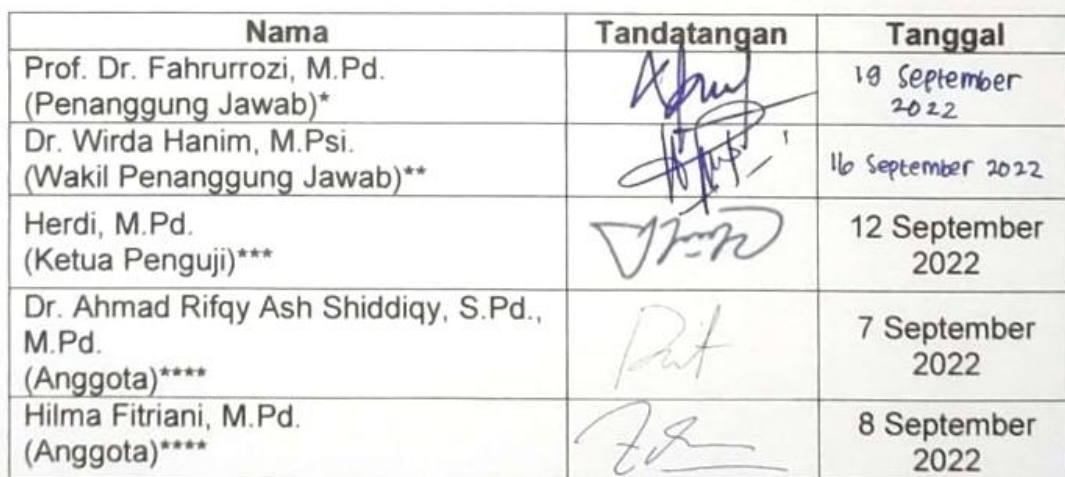 Nama Tandatangan Tanggal
Prof. Dr. Fahrurrozi, M.Pd.
(Penanggung Jawab)*
19 September
2022
Dr. Wirda Hanim, M.Psi.
(Wakil Penanggung Jawab)**
16 September 2022
Herdi, M.Pd.
(Ketua Penguji)***
12 September
2022
Dr. Ahmad Rifqy Ash Shiddiqy, S.Pd.,
M.Pd.
(Anggota)****
7 September
2022
Hilma Fitriani, M.Pd.
(Anggota)****
8 September
2022